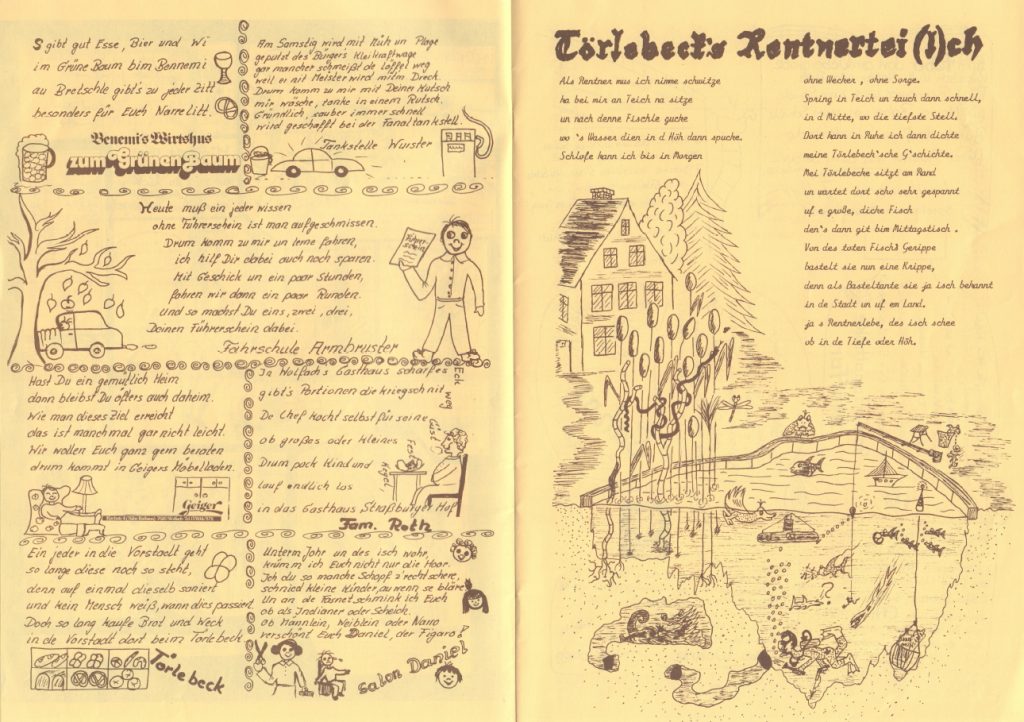 S gibt gut Esse, Bier und Wi
im Grüne Baum bim Bennemi
au Bretschle gibt's zu jeder Zitt
besonders für Euch Narrelitt.
Benemi's Wirtshus
zum Grünen Baum
Am Samstig wird mit Müh un Plage
geputzt des Bürgers Kleikraftwage
gar mancher schmeißt de Löffel weg
weil er nit Meister wird mitm Dreck.
Drum komm zu mir mit Deiner Kutsch
mir wäsche, tanke in einem Rutsch.
Gründlich, sauber immer schnell
wird geschafft bei der Fanal tankstell.
Tankstelle Wurster
Heute muß ein jeder wissen
ohne Führerschein ist man aufgeschmissen.
Drum komm zu mir un lerne fahren,
ich hilf Dir dabei auch noch sparen.
Mit Geschick un ein paar Stunden,
fahren wir dann ein paar Runden.
Und so machst Du eins, zwei, drei,
Deinen Führerschein dabei.
Fahrschule Armbruster
Führerschein
Hast Du ein gemütlich Heim
dann bleibst Du öfters auch daheim.
Wie man dieses Ziel erreicht
das ist manchmal gar nicht leicht.
Wir wollen Euch ganz gern beraten
drum kommt in Geigers Möbelladen.
Geiger
In Wolfachs Gasthaus scharfes Eck
gibt's Portionen die kriegsch nit weg
De Chef kocht selbst für seine Gäst
ob großes oder kleines Fest
Drum pack Kind und Kegel,
lauf endlich los
in das Gasthaus Straßburger Hof
Fam. Roth
Ein jeder in die Vorstadt geht
so lange diese noch so steht,
denn auf einmal die selb saniert
und kein Mensch weiß, wann dies passiert.
Doch so lang kaufe Brot und Weck
in de Vorstadt dort beim Törlebeck
Törlebeck
Unterm Johr un des isch wohr,
krümm' ich Euch nicht nur die Hoor.
Ich du so manche Schopf z'recht schere,
schnied kleine Kinder, au wenn se bläre
Un an de Fasnet schmink ich Euch
ob als Indianer oder Scheich.
Ob Männlein, Weiblein oder Narro
verschönt Euch Daniel, der Figaro!
Salon Daniel
Törlebeck's Rentnertei(l)ch
Als Rentner mus ich nimme schwitze
ha bei mir an Teich na sitze
un nach denne Fischle gucke
wo 's Wasser dien in d Höh dann spucke.
Schlofe kann ich bis in Morgen
ohne Wecker, ohne Sorge.
Spring in Teich un tauch dann schnell,
in d Mitte, wo die tiefste Stell.
Dort kann in Ruhe ich dann dichte
meine Törlebeck'sche G'schichte.
Mei Törlebecke sitzt am Rand
un wartet dort scho sehr gespannt
uf e große, dicke Fisch
den's dann git bim Mittagstisch.
Von des toten Fischs Gerippe
bastelt sie nun eine Krippe,
denn als Basteltante sie ja isch bekannt
in de Stadt un uf em Land.
ja s Rentnerlebe, des isch schee
ob in de Tiefe oder Höh.